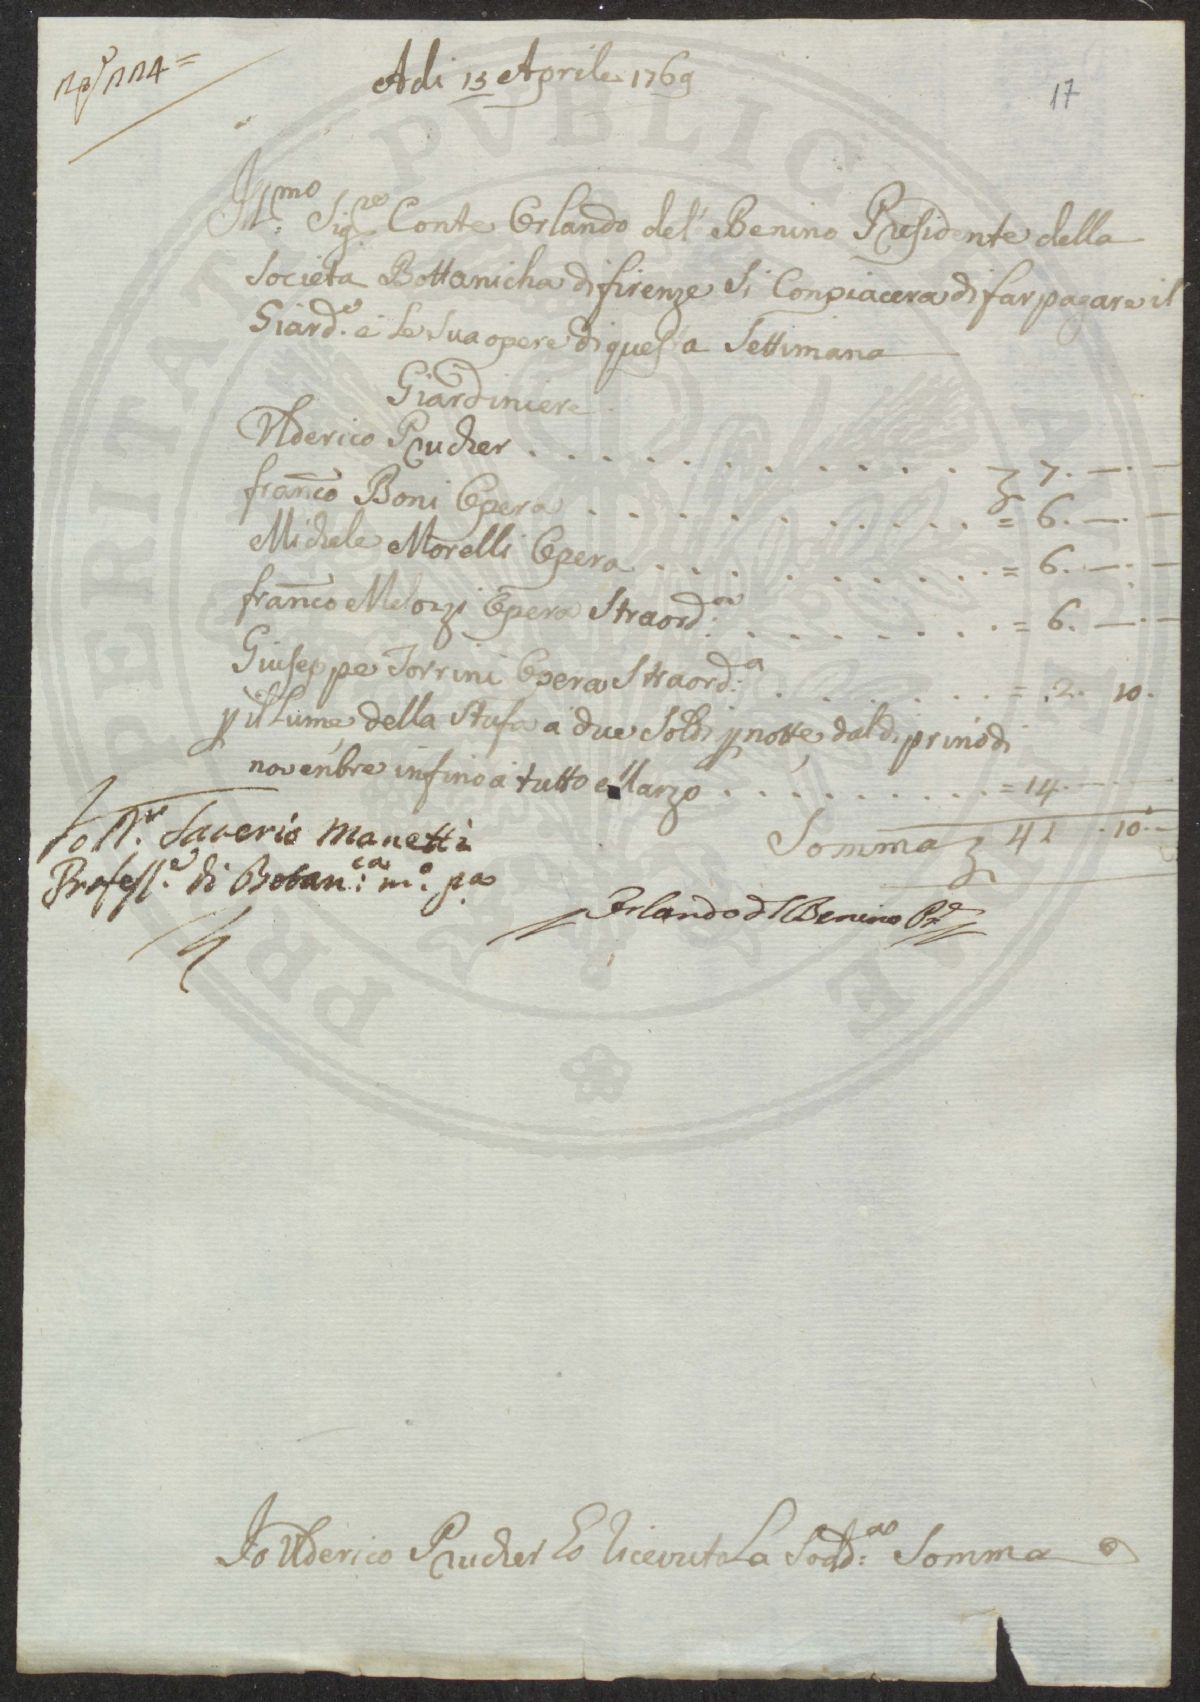 114 =
Adi 15 Aprile 1769
17
Ill.mo Sig.re Conte Orlando del' Benino Presidente della
Societa Bottanicha di firenze Si Conpiacera di far pagare il
Giard.e e le Sua opere di questa Settimana
Giardiniere
Ulderico Prucher . . . . . . . . . . . . . . 7. — . —
franco Boni Opera . . . . . . . . . . . . = 6. — . —
Michele Morelli Opera . . . . . . . . . . = 6. — . —
franco Melozzi Opera Straord.a . . . . . . . . = 6. — . —
Giuseppe Torrini Opera Straord.a . . . . . . . = 2. 10.
p il Lume della Stufa a due Soldi p notte dal di primo di
novenbre infino a tutto Marzo . . . . . . . . . = 14. — . —
Somma 41 . 10. —
Io D.r Saverio Manetti
Profess.e di Botan.ca m.o pa
Orlando del Benino Pr.e
Io Ulderico Prucher O ricevuto La Sodd.a Somma
PERITATI PVBLICAE